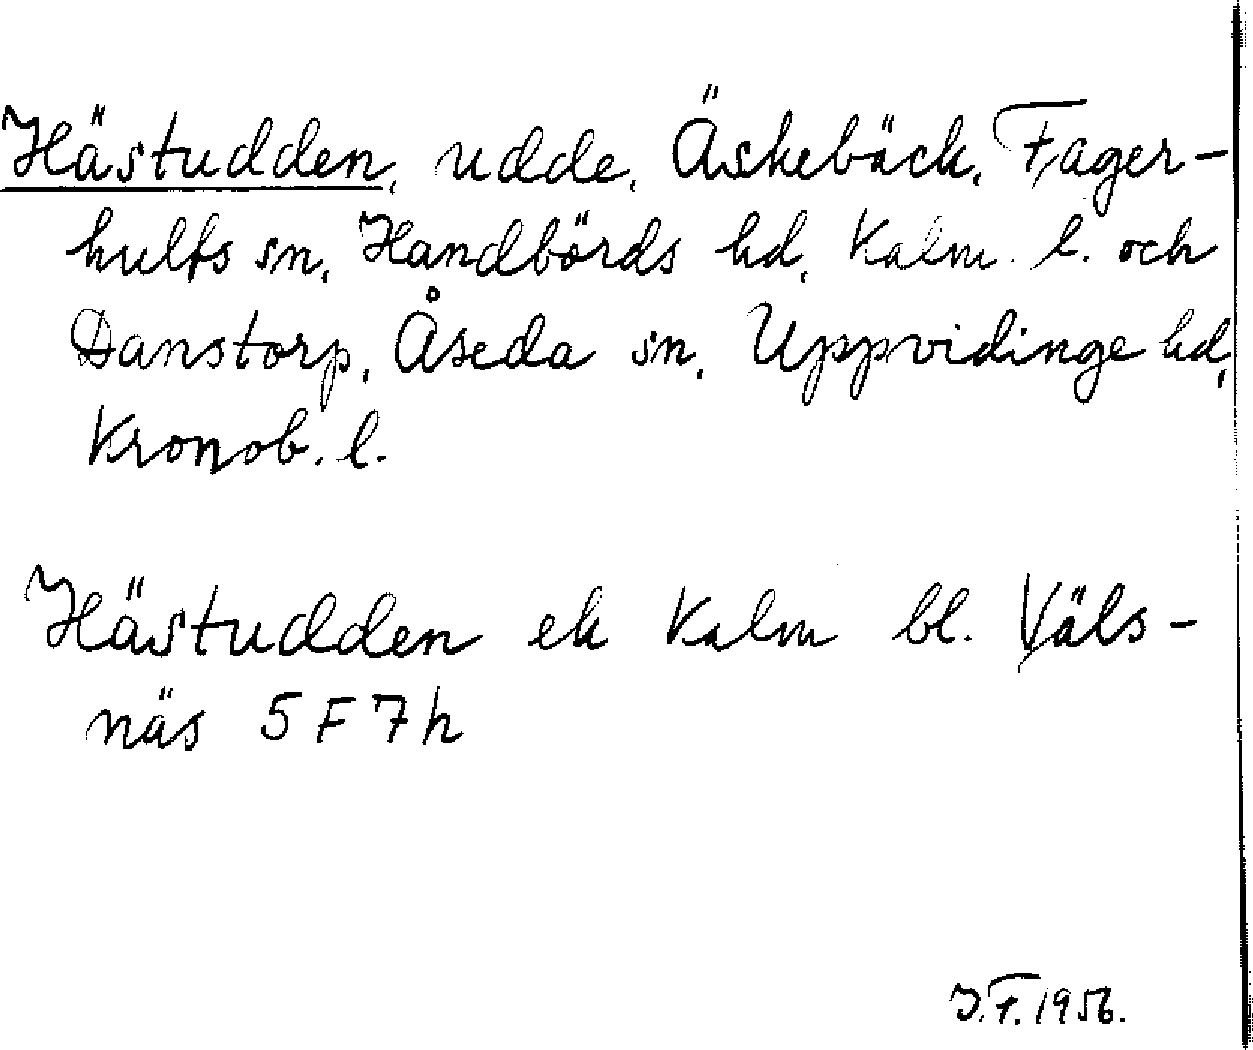 Hästudden, udde, Äskebäck, Fager-
hults sn, Handbörds hd, Kalm. l. och
Danstorp, Åseda sn, Uppvidinge hd,
Kronob. l.
Hästudden ek Kalm bl. Väls-
näs 5 F 7 h
J.F. 1956.